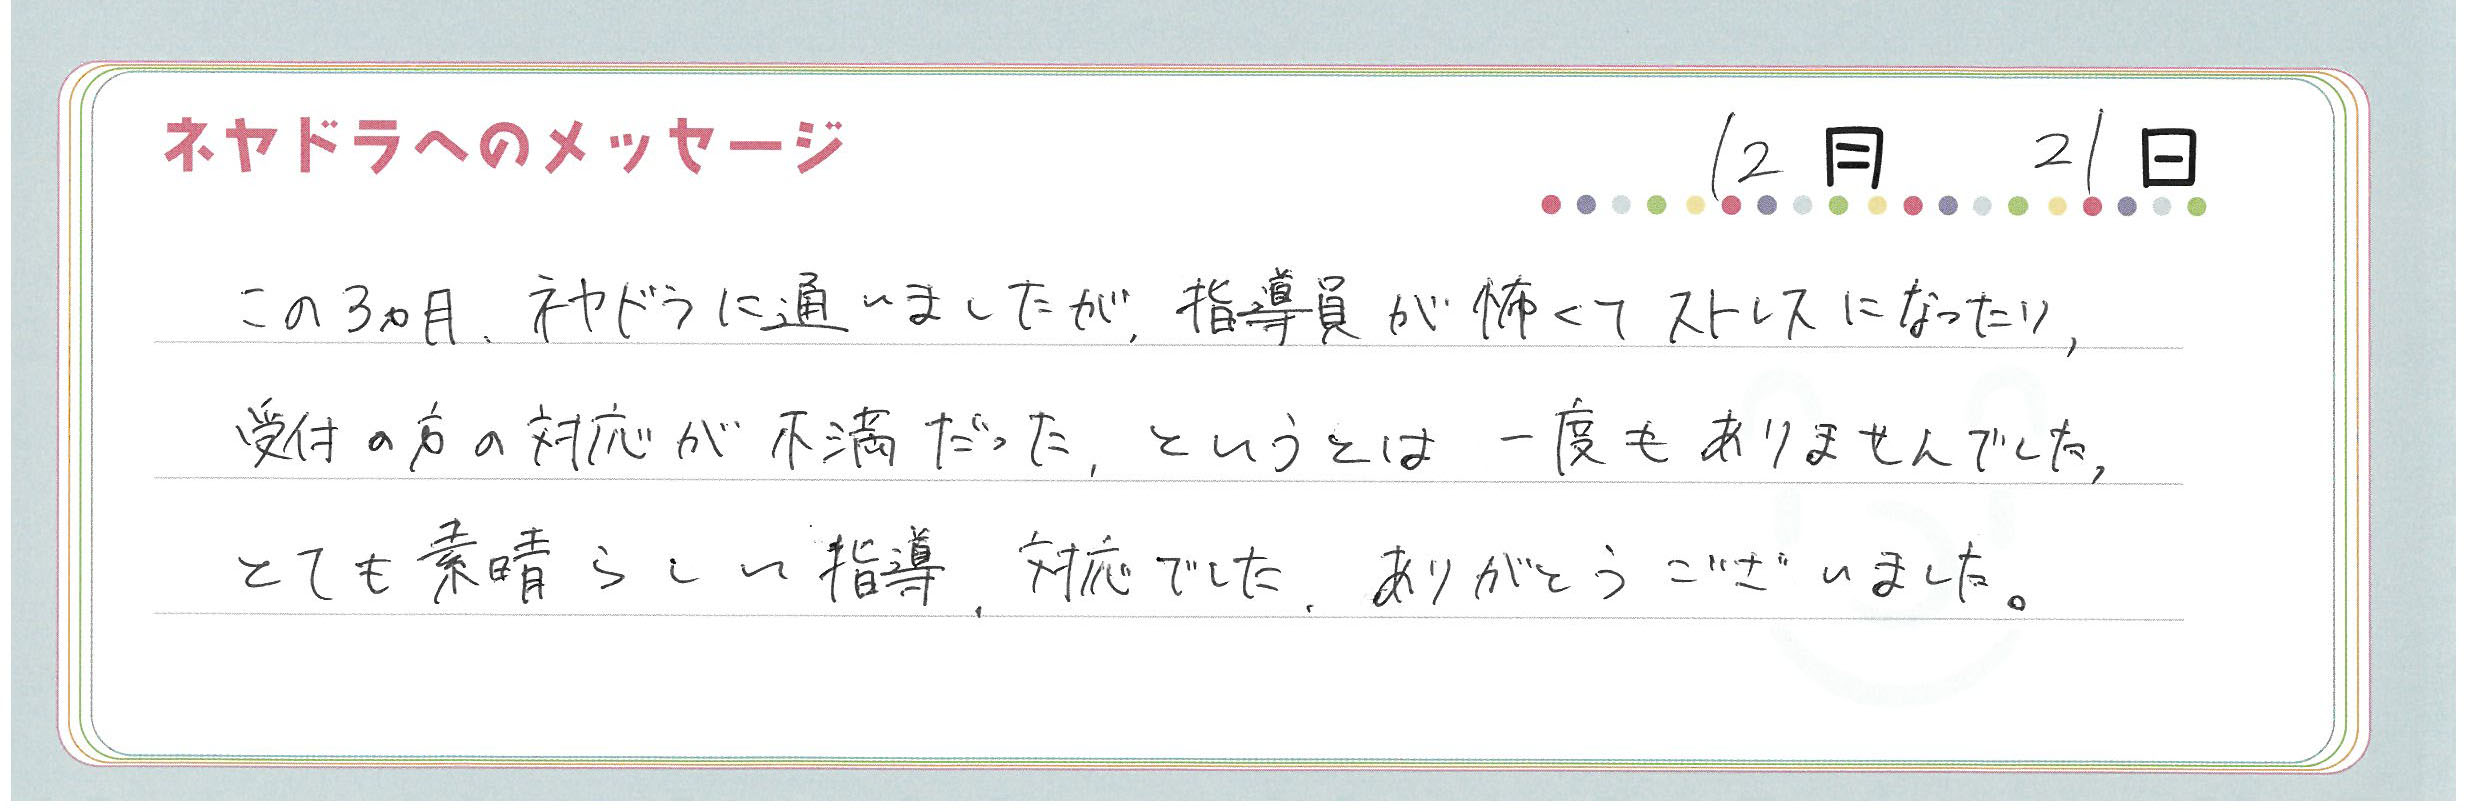 ネヤドラへのメッセージ
12月 21日
この3ヵ月、ネヤドラに通いましたが、指導員が怖くてストレスになったり、
受付の方の対応が不満だった、というとは一度もありませんでした、
とても素晴らしい指導、対応でした、ありがとうございました。